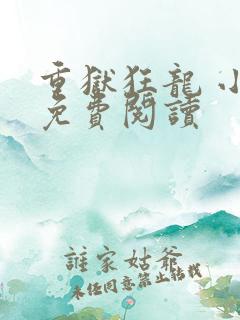 重獄狂龍 小
免費閱讀
誰家姑爺
未任同意禁止轉載